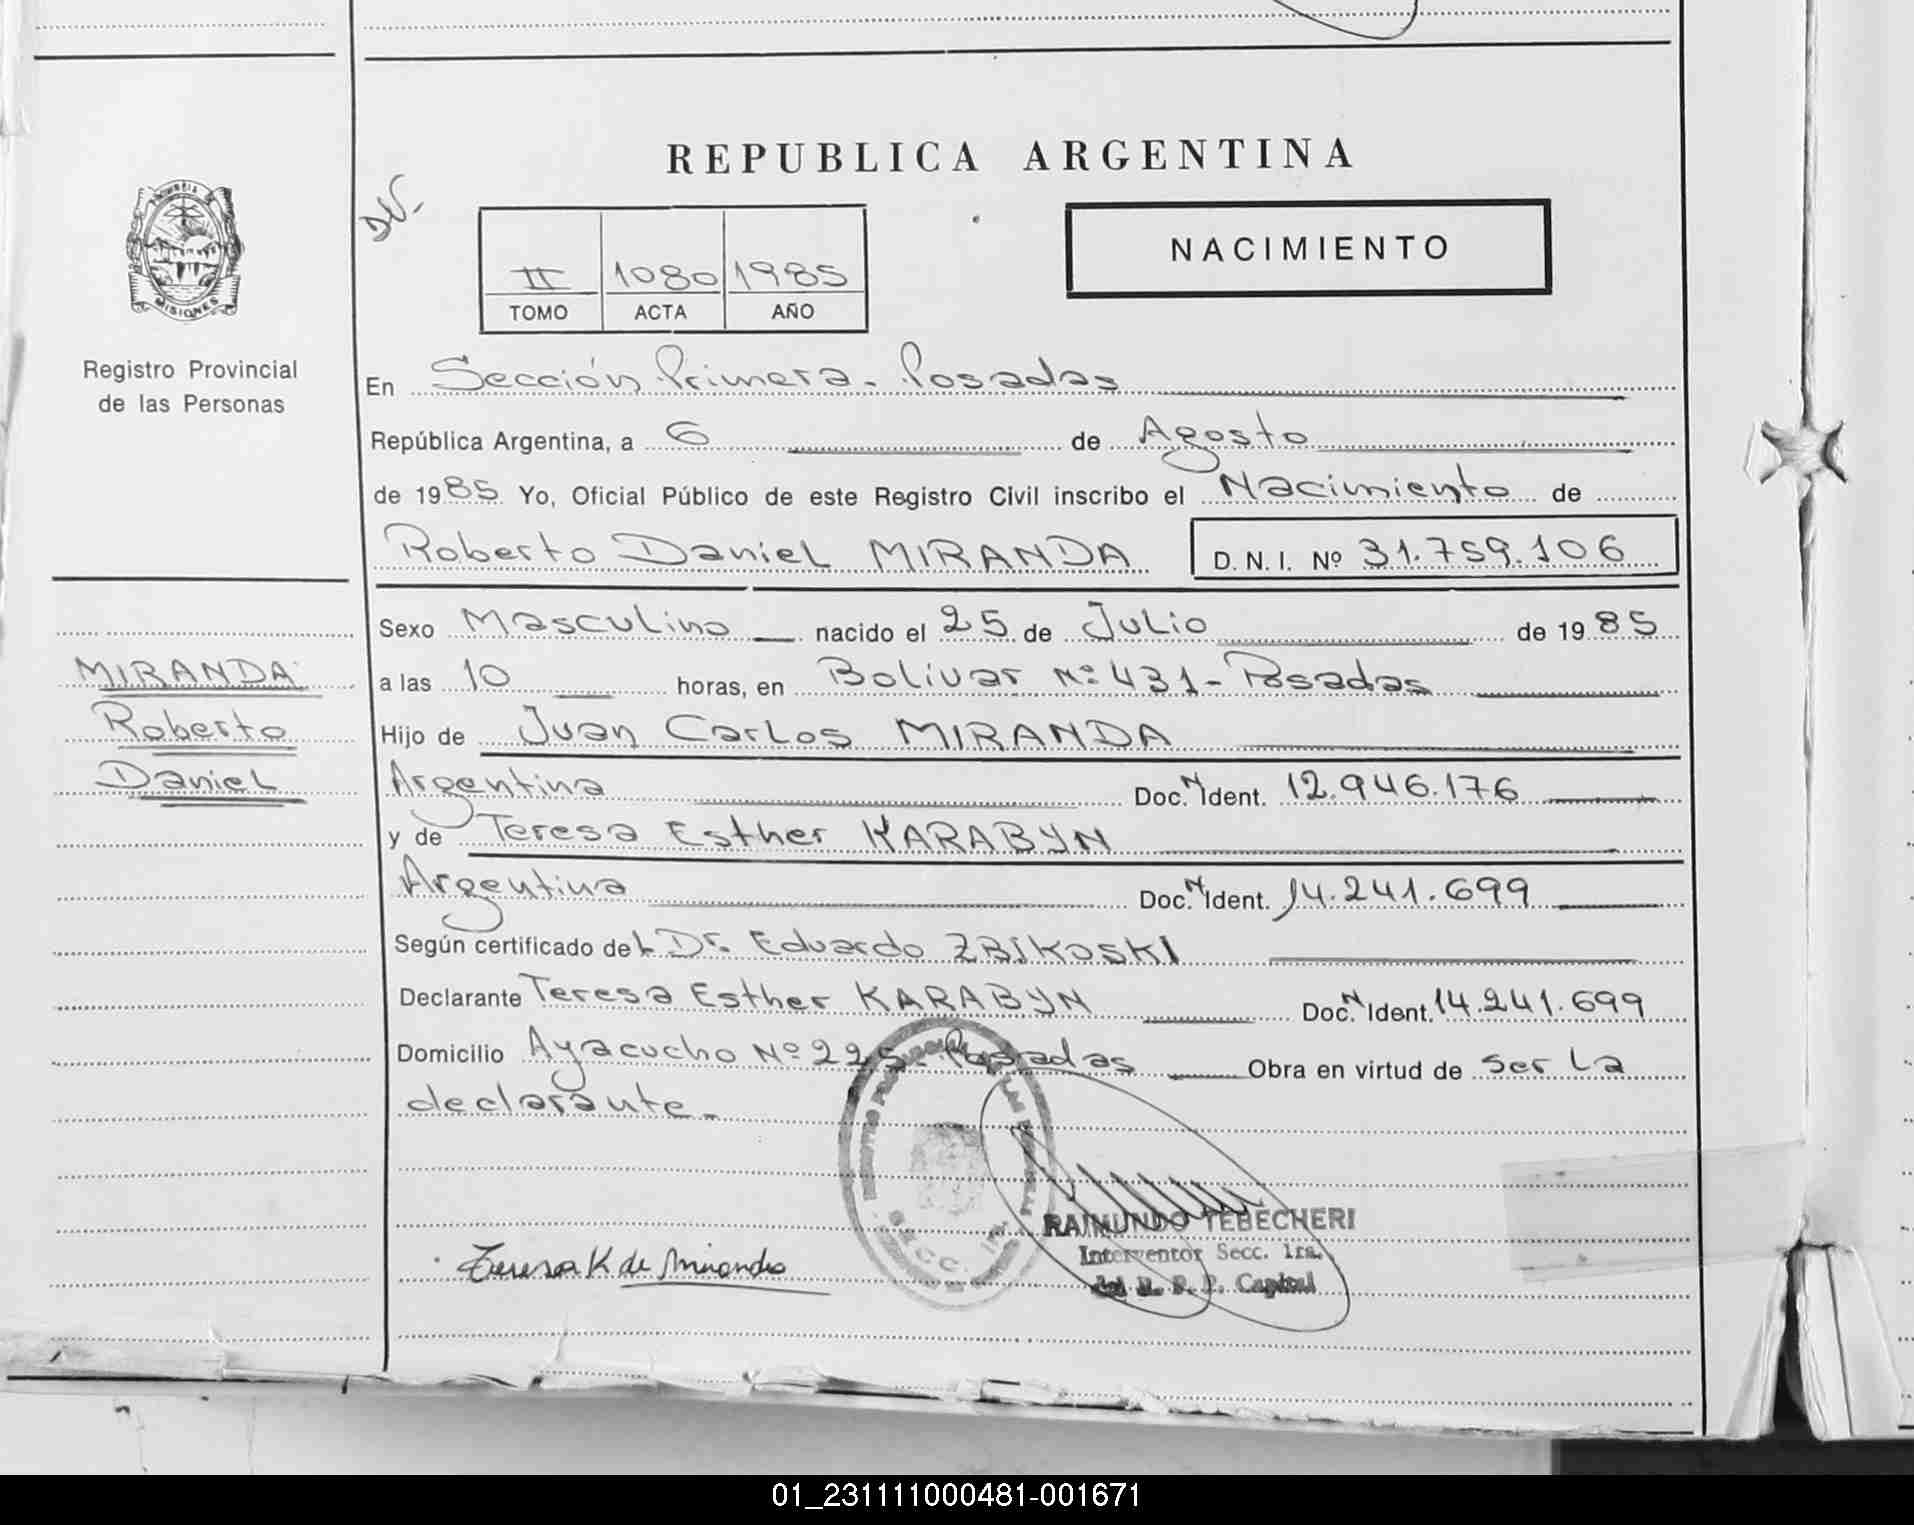 REPUBLICA ARGENTINA
MISIONES
Registro Provincial
de las Personas
II 1080 1985
TOMO ACTA AÑO
NACIMIENTO
En Sección Primera - Posadas
República Argentina, a 6 de Agosto
de 1985 Yo, Oficial Público de este Registro Civil inscribo el Nacimiento de
Roberto Daniel MIRANDA D. N. I. Nº 31.759.106
MIRANDA
Roberto
Daniel
Sexo Masculino nacido el 25 de Julio de 1985
a las 10 horas, en Bolívar Nº 431 - Posadas
Hijo de Juan Carlos MIRANDA
Argentina Doc. N Ident. 12.946.176
y de Teresa Esther KARABYN
Argentina Doc. N Ident. 14.241.699
Según certificado del Dr. Eduardo ZBIKOSKI
Declarante Teresa Esther KARABYN Doc. N Ident. 14.241.699
Domicilio Ayacucho Nº 225 - Posadas Obra en virtud de ser la
declarante -
Teresa K de Miranda
RAIMUNDO TEBECHERI
Interventor Secc. 1ra.
del R. P. P. Capital
01_231111000481-001671